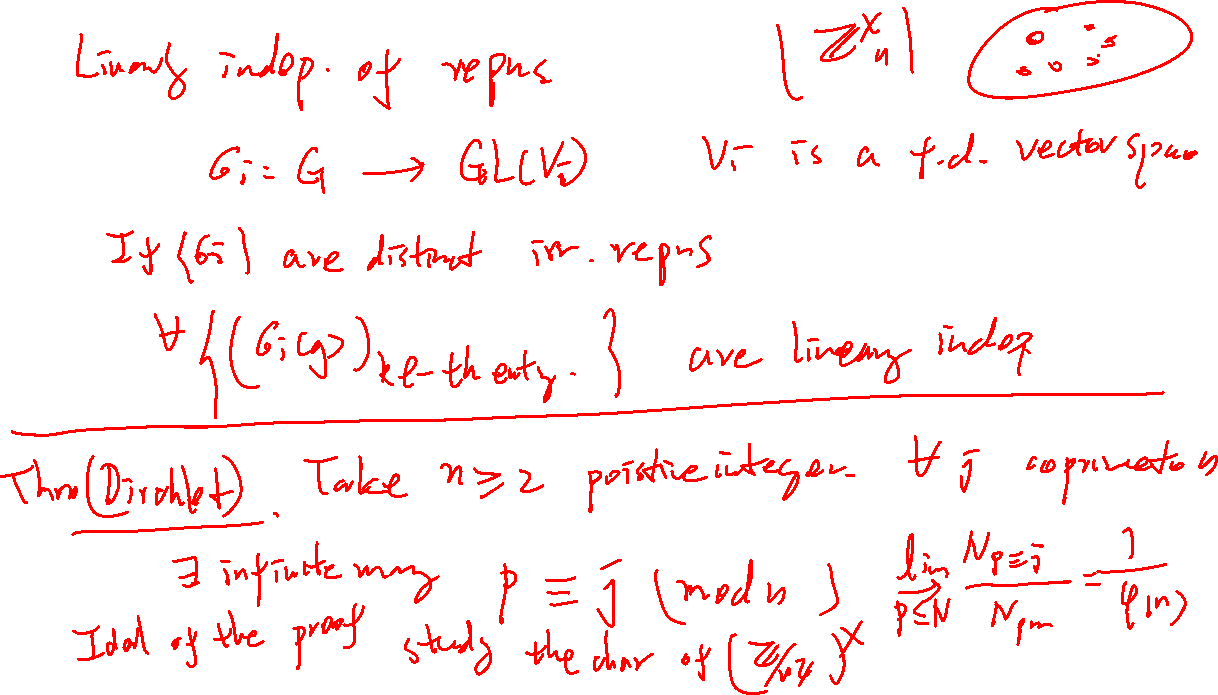 Linearly indep. of repns |ℤ^×_n|
σ_i: G → GL(V_i) V_i is a f.d. vector space
If {σ_i} are distinct irr. repns
∀ {(σ_i(g))_{kl-th entry.}} are linearly indep
Thm (Dirichlet). Take n ≥ 2 poistive integer. ∀ j coprime to n
∃ infinite many p ≡ j (mod n) lim_{p≤N} N_{p≡j} / N_{pm} = 1/φ(n)
Idal of the proof study the char of (ℤ/nℤ)^×